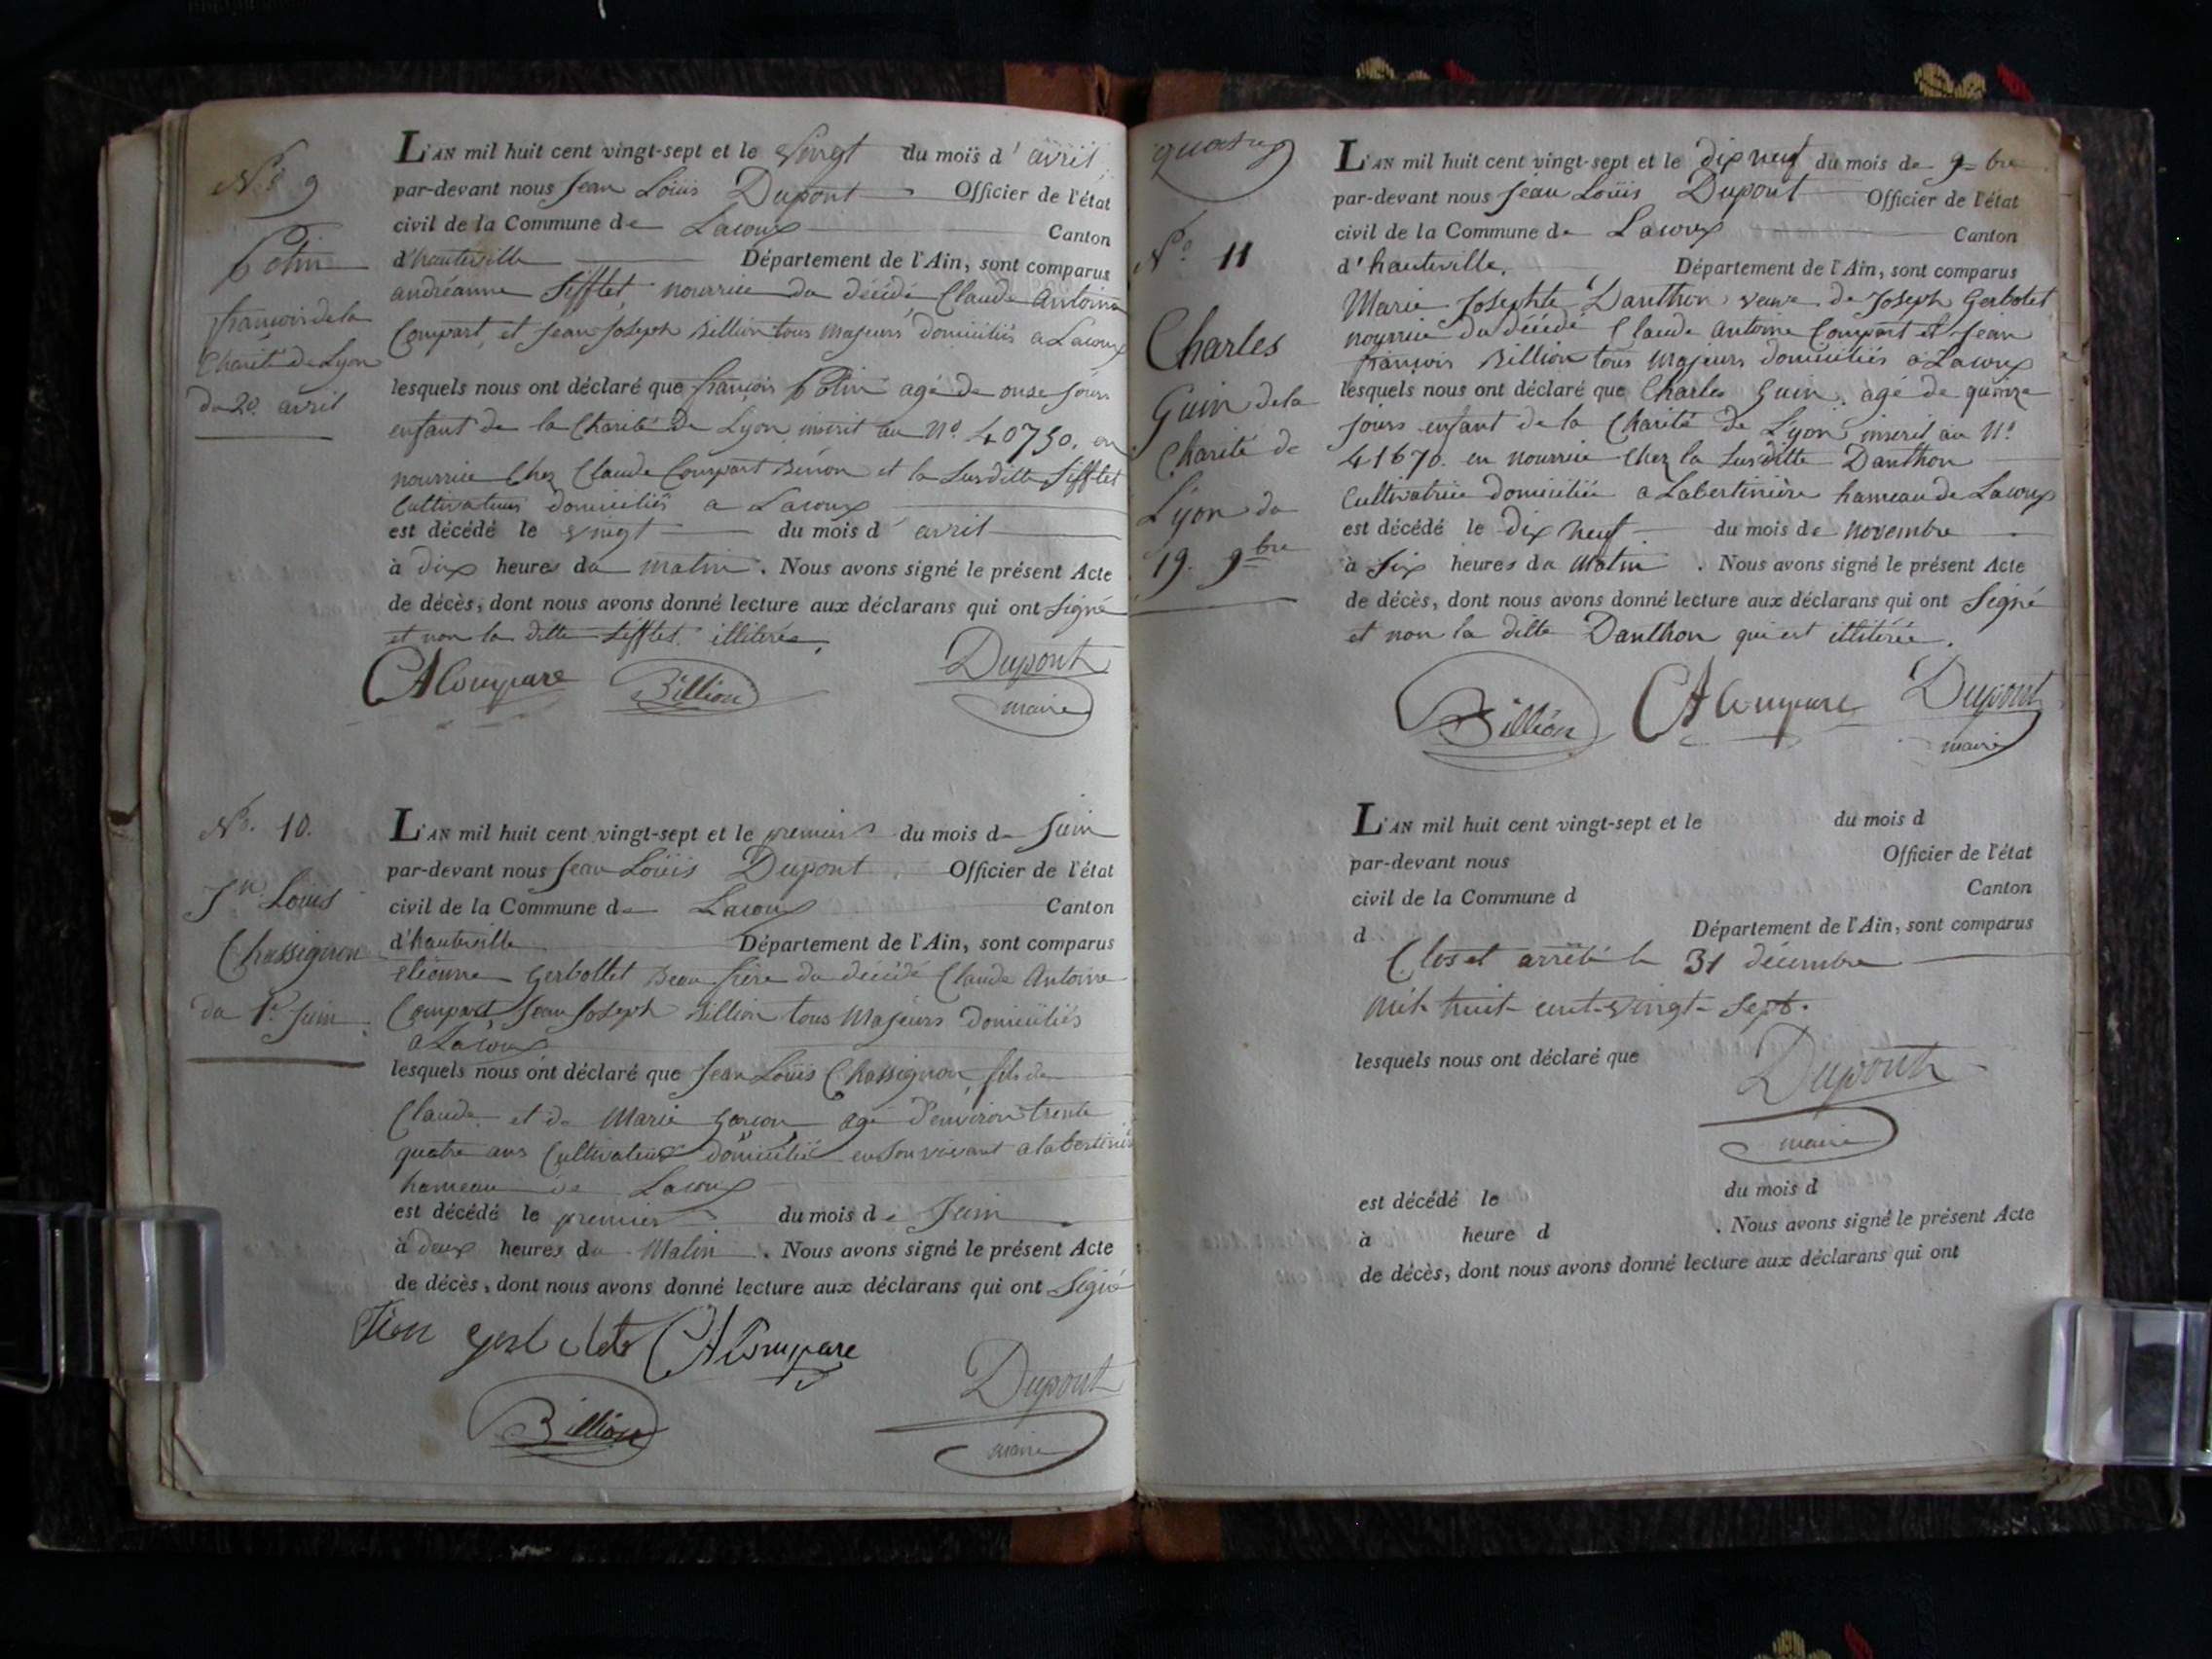 N.º 9
françois de la
Charité de Lyon
du 20. avril
L'AN mil huit cent vingt-sept et le vingt du mois d'avril
par-devant nous Jean Loüis Dupont Officier de l'état
civil de la Commune de Lacoux Canton
d'hauteville Département de l'Ain, sont comparus
andréanne Sifflet, nourrice du décédé, Claude Antoine
Compart, et Jean Joseph Billion tous Majeurs domiciliés a Lacoux
lesquels nous ont déclaré que françois agé de onze jours
enfant de la Charité de Lyon inscrit au N.º 40750. en
nourrice Chez Claude Compart et la Susditte Sifflet
Cultivateurs domiciliés a Lacoux
est décédé le vingt du mois d'avril
à dix heures du matin. Nous avons signé le présent Acte
de décès, dont nous avons donné lecture aux déclarans qui ont Signé
et non la ditte Sifflet. illiterée.
CACompare Billion Dupont
maire
Nº. 10.
Jn Louis
Chassignon
du 1er Juin
L'AN mil huit cent vingt-sept et le premier du mois de Juin
par-devant nous Jean Loüis Dupont Officier de l'état
civil de la Commune de Lacoux Canton
d'hauteville Département de l'Ain, sont comparus
etiénne Gerbollet Beau frère du décédé Claude Antoine
Compart Jean Joseph Billion tous Majeurs Domiciliés
a Lacoux
lesquels nous ont déclaré que Jean Loüis Chassignon, fils de
Claude et de Marie agé d'environ trente
quatre ans Cultivateur domicilié en son vivant a labertinie
hameau de Lacoux
est décédé le premier du mois de Juin
à deux heures du Matin. Nous avons signé le présent Acte
de décès, dont nous avons donné lecture aux déclarans qui ont Signé
CACompare
Billion Dupont
maire
quatre
N.º 11
Charles
Guin de la
Charité de
Lyon du
19. 9bre
L'AN mil huit cent vingt-sept et le dix neuf du mois de 9bre
par-devant nous Jean Loüis Dupont Officier de l'état
civil de la Commune de Lacoux Canton
d'hauteville. Département de l'Ain, sont comparus
Marie Josephte Danthon veuve de Joseph Gerbolet
nourrice du décédé Claude Antoine Compart et Jean
françois Billion tous Majeurs domiciliés a Lacoux
lesquels nous ont déclaré que Charles Guin, agé de quinze
jours enfant de la Charité de Lyon inscrit au N.º
41670. en nourrice Chez la Susditte Danthon
Cultivatrice domiciliée a Labertinière hameau de Lacoux
est décédé le dix neuf du mois de novembre
à Six heures du Matin. Nous avons signé le présent Acte
de décès, dont nous avons donné lecture aux déclarans qui ont Signé
et non la ditte Danthon qui est illitérée.
Billion CACompare Dupont
maire
L'AN mil huit cent vingt-sept et le du mois d
par-devant nous Officier de l'état
civil de la Commune d Canton
d Département de l'Ain, sont comparus
Clos et arrêté le 31 décembre
mil huit cent vingt-Sept.
lesquels nous ont déclaré que
Dupont
maire
est décédé le du mois d
à heure d . Nous avons signé le présent Acte
de décès, dont nous avons donné lecture aux déclarans qui ont